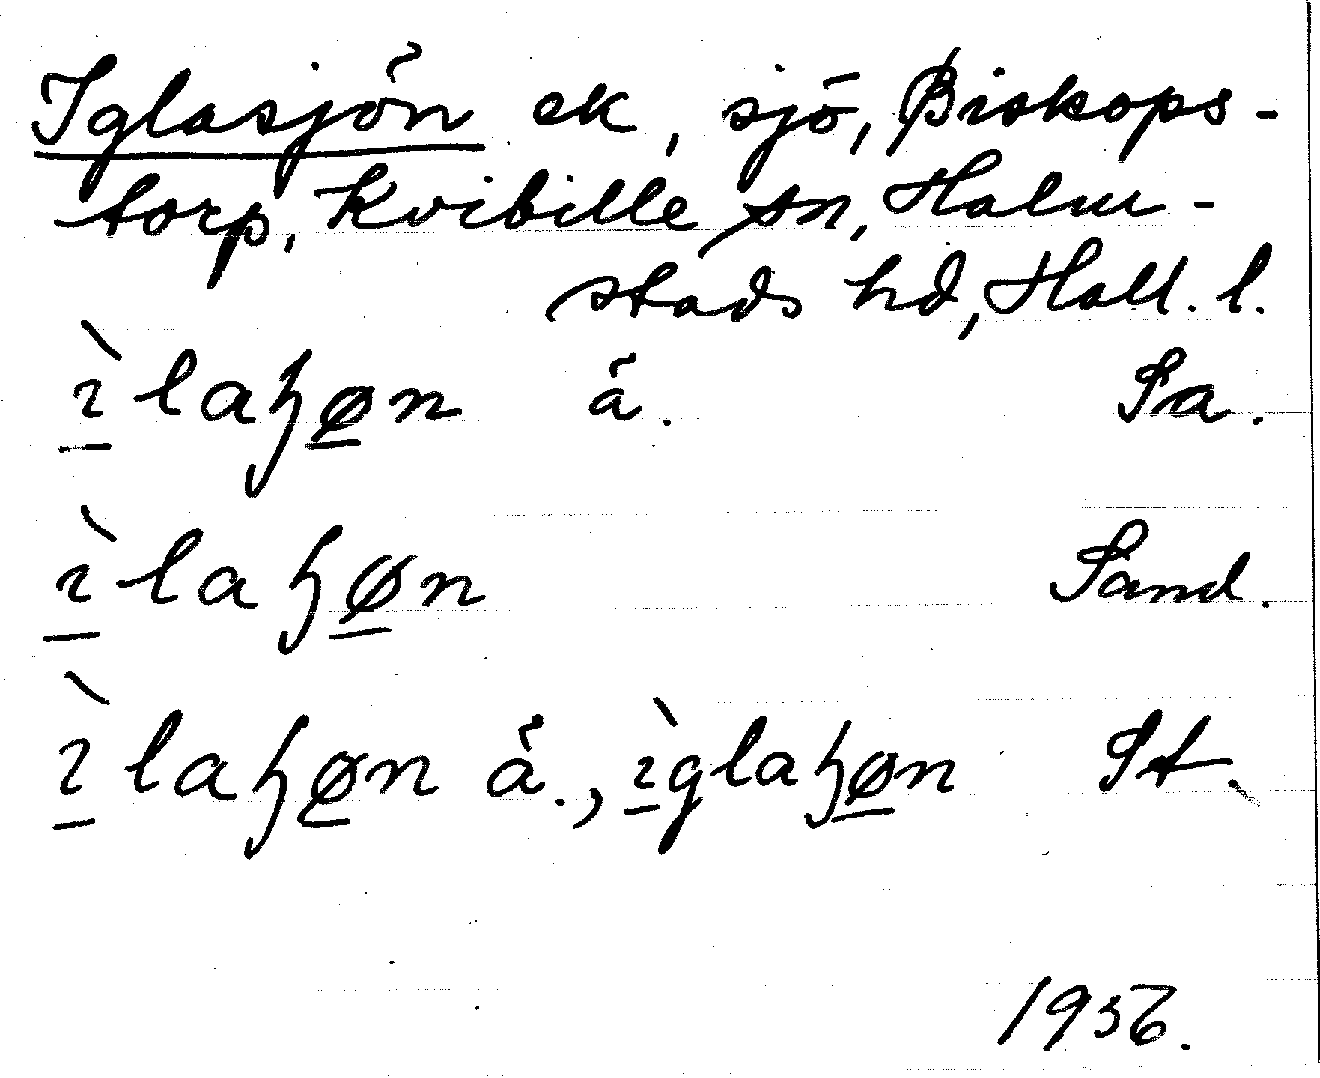 Iglasjön ek, sjö, Biskops-
torp, Kvibille sn, Halm-
stads hd, Hall. l.
ìlaɧøn å. Sa.
ìlaɧøn Sand.
ìlaɧøn å., ìglaɧøn St.
1936.